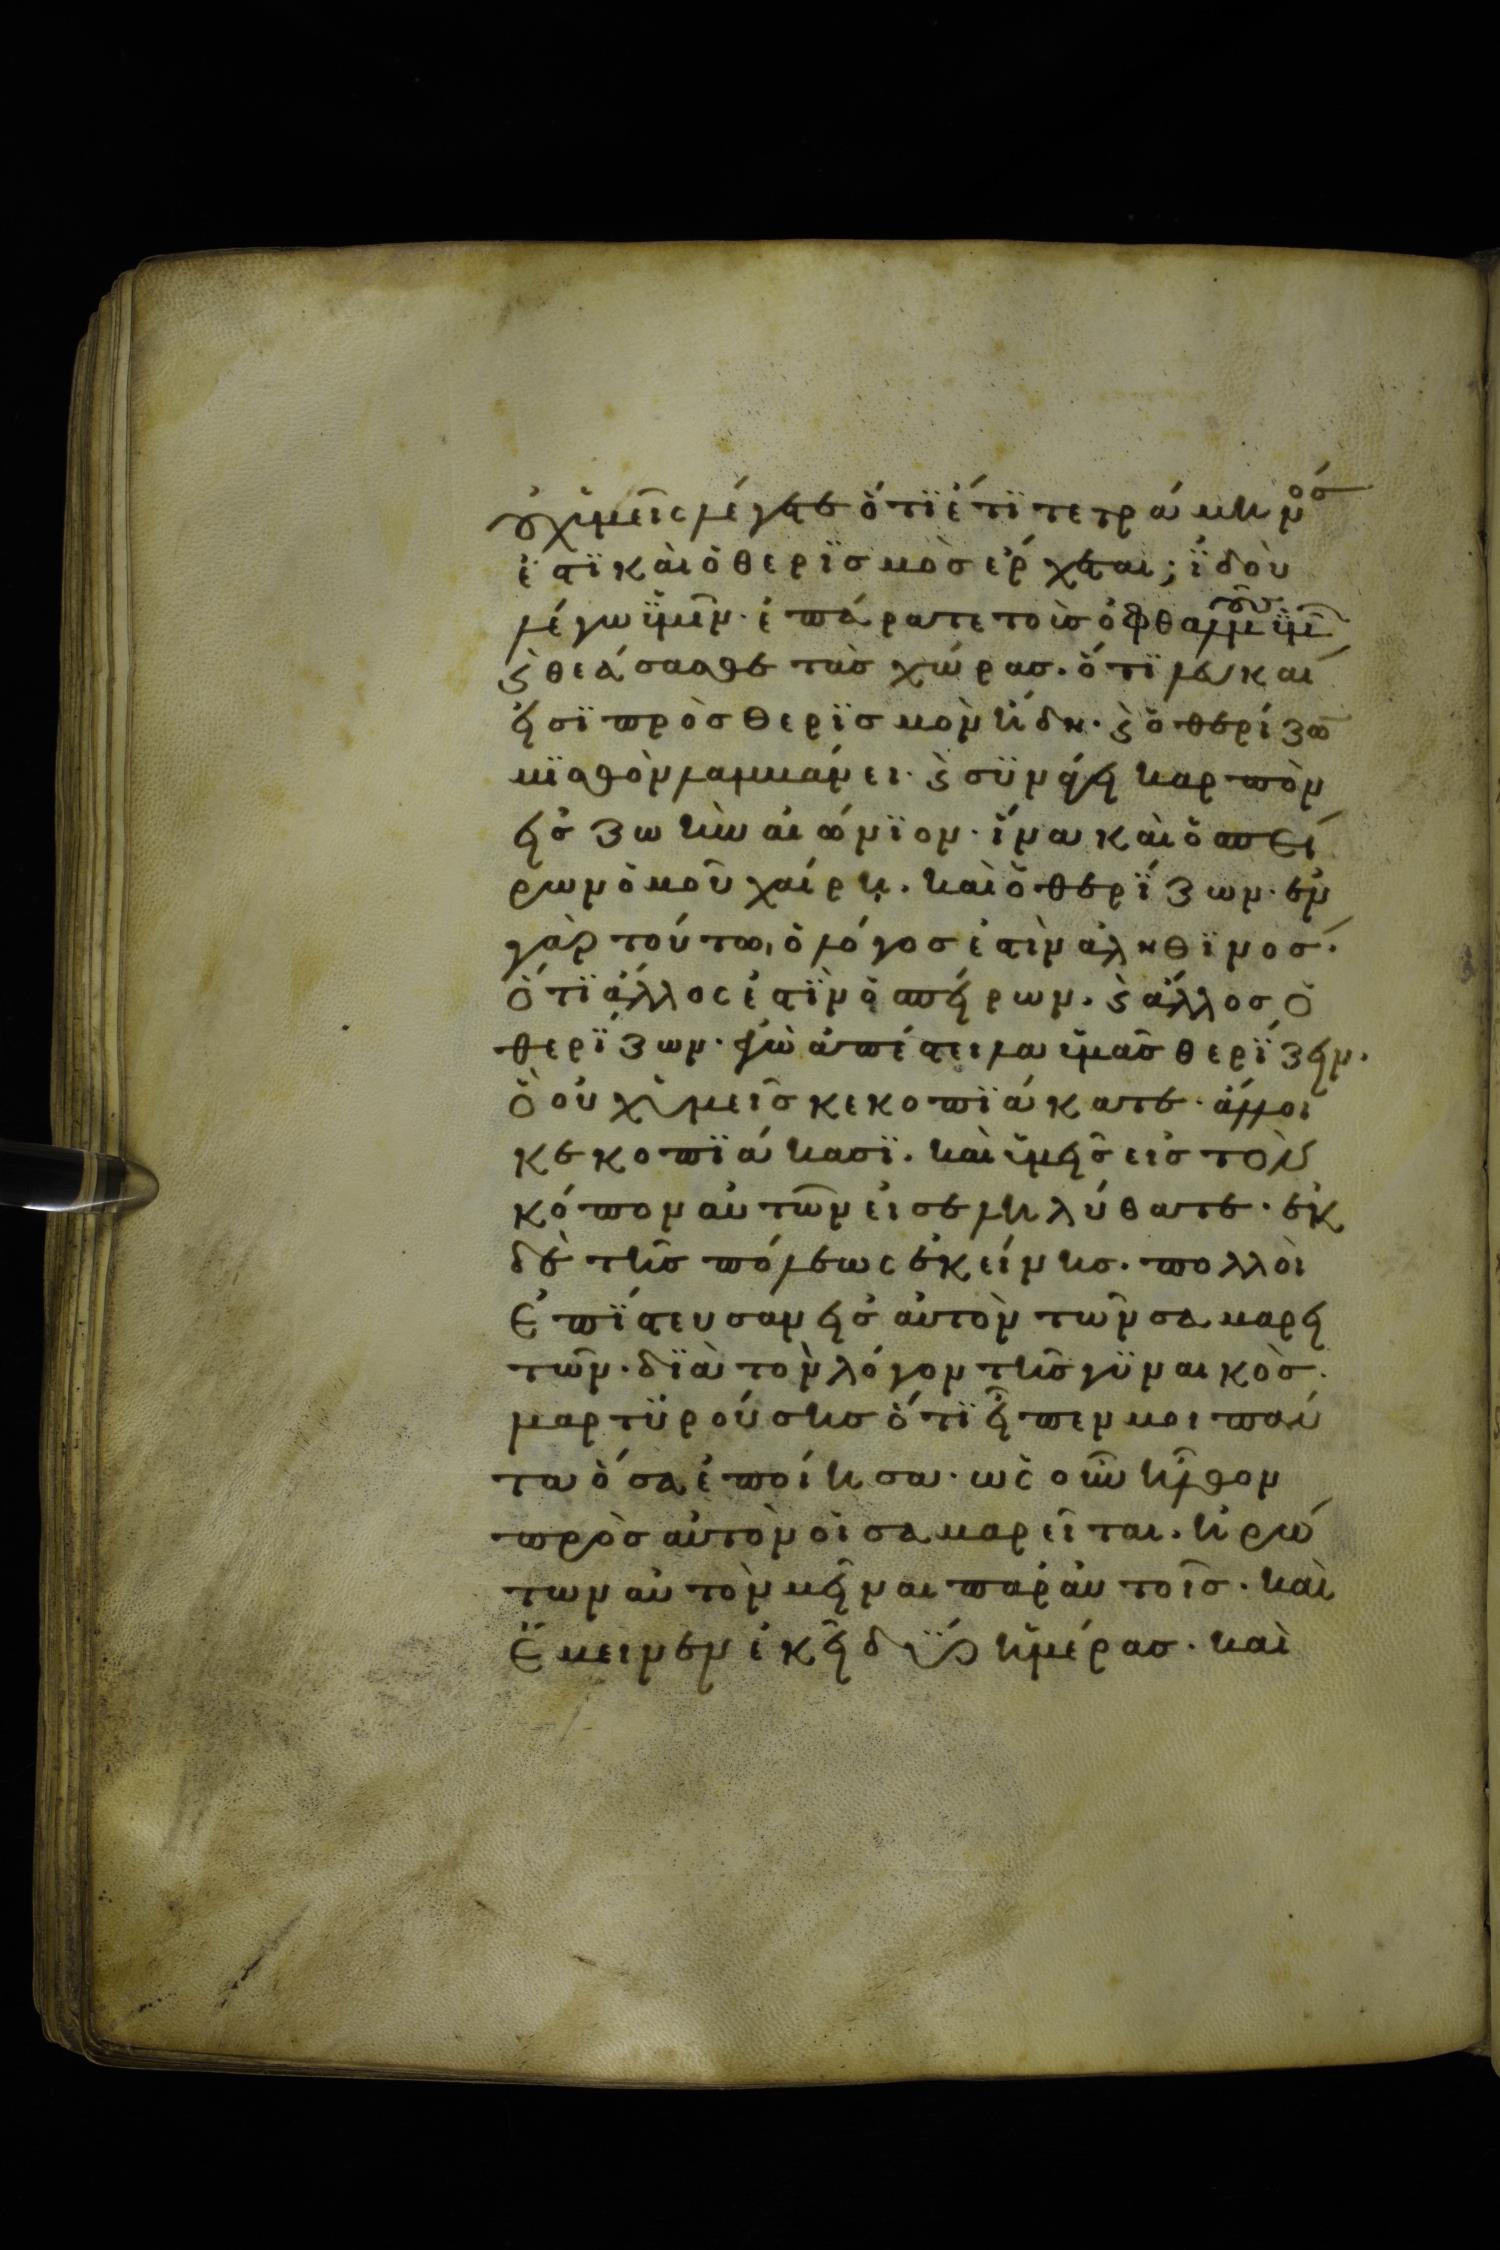 οὐχ ὑμεῖς λέγετε ὅτϊ ἔτϊ τετράμηνος
ἐστϊ καὶ ὁ θερϊσμὸσ ἔρχεται; ϊδοὺ
λέγω ὑμῖν· ἐπάρατε τοὺσ ὀφθαλμοὺς ὑμῶν
ϗ θεάσασθε τὰσ χώρασ· ὅτϊ λευκαί
εἰσϊ πρὸσ θερϊσμὸν ἤδη· ϗ ὁ θερίζων
μϊσθὸν λαμβάνει· ϗ σϋνάγει καρπὸν
εἰσ ζωὴν αἰώνϊον· ἵνα καὶ ὁ σπεί
ρων ὁμοῦ χαίρη· καὶ ὁ θερΐζων· ἐν
γὰρ τούτω, ὁ λόγοσ ἐστὶν ἀληθϊνοσ·
Ὅτϊ ἄλλος ἐστϊν ὁ σπείρων· ϗ ἄλλοσ ὁ
θερΐζων· ἐγὼ ἀπέστειλα ὑμᾶσ θερΐζειν·
ὃ οὐχ ὑμεῖσ κεκοπϊάκατε· ἄλλοι
κεκοπϊάκασϊ· καὶ ὑμεῖσ εἰσ τὸν
κόπον αὐτῶν εἰσεληλύθατε· ἐκ
δὲ τῆσ πόλεως ἐκείνησ· πολλοὶ
ἐπΐστευσαν εἰσ αὐτὸν τῶν σαμαρει
τῶν· δϊὰ τὸν λόγον τῆσ γϋναικὸσ·
μαρτϋρούσησ ὅτϊ εἶπεν μοι πάν
τα ὅσα ἐποίησα· ὡς οὖν ἦλθον
πρὸσ αὐτὸν οἱ σαμαρεῖται· ἠρώ
των αὐτὸν μεῖναι παρ' αὐτοῖσ· καὶ
ἔμεινεν ἐκεῖ δϋο ἡμέρασ· καὶ